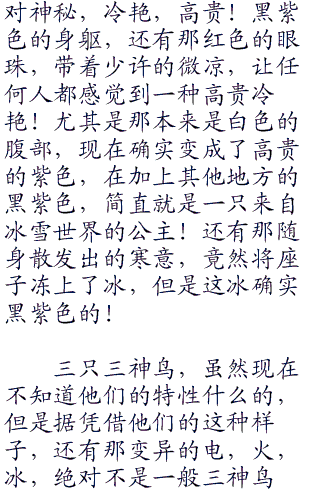 对神秘，冷艳，高贵！黑紫
色的身躯，还有那红色的眼
珠，带着少许的微凉，让任
何人都感觉到一种高贵冷
艳！尤其是那本来是白色的
腹部，现在确实变成了高贵
的紫色，在加上其他地方的
黑紫色，简直就是一只来自
冰雪世界的公主！还有那随
身散发出的寒意，竟然将座
子冻上了冰，但是这冰确实
黑紫色的！
三只三神鸟，虽然现在
不知道他们的特性什么的，
但是据凭借他们的这种样
子，还有那变异的电，火，
冰，绝对不是一般三神鸟